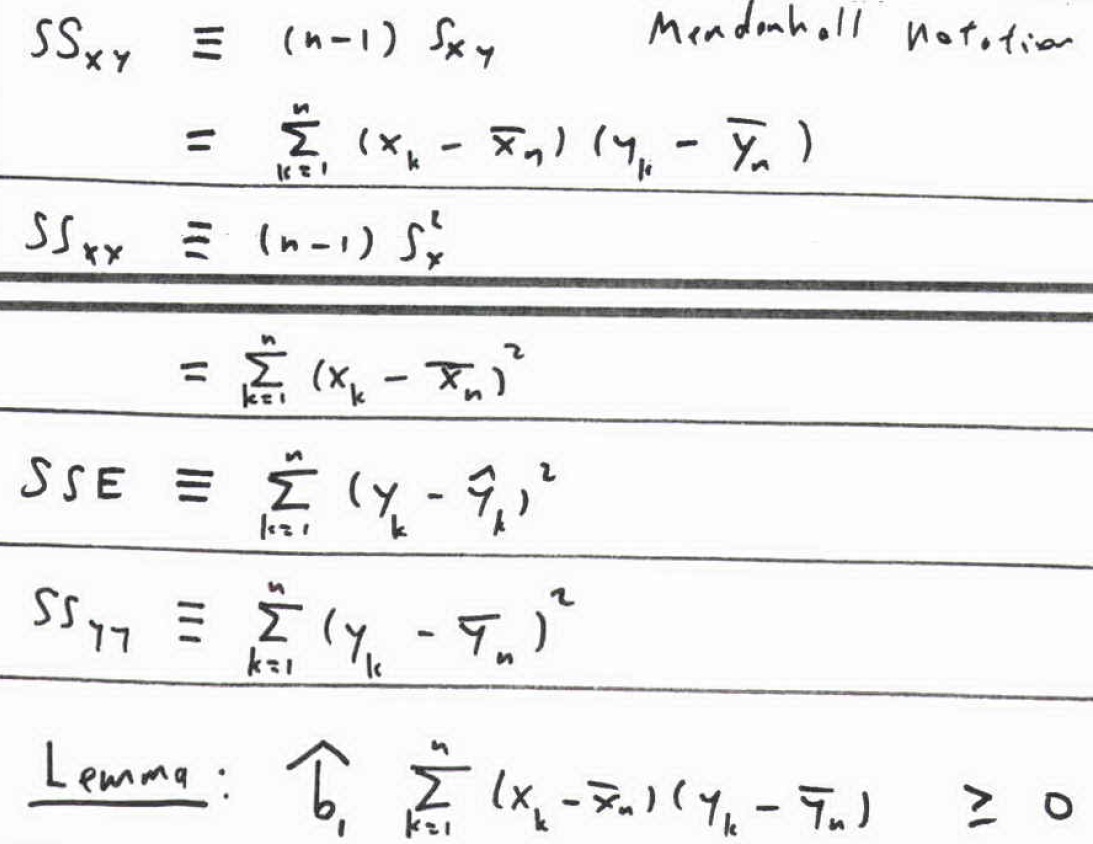 SS_{xy} ≡ (n-1) S_{xy} Mendenhall Notation
= \sum_{k=1}^{n} (x_k - \overline{x}_n) (y_k - \overline{y}_n)
SS_{xx} ≡ (n-1) S_x^2
= \sum_{k=1}^{n} (x_k - \overline{x}_n)^2
SSE ≡ \sum_{k=1}^{n} (y_k - \hat{y}_k)^2
SS_{yy} ≡ \sum_{k=1}^{n} (y_k - \overline{y}_n)^2
Lemma: \hat{b}_1 \sum_{k=1}^{n} (x_k - \overline{x}_n)(y_k - \overline{y}_n) ≥ 0